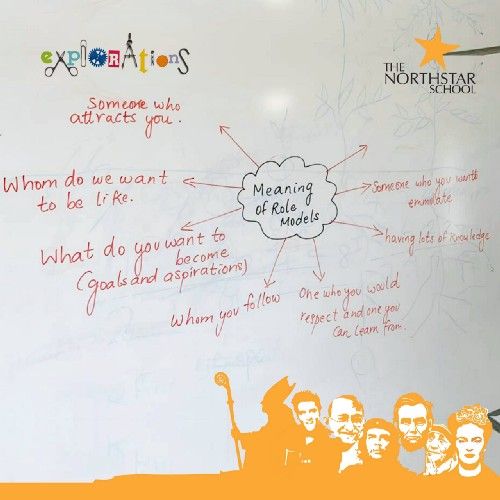 explorations
THE
NORTHSTAR
SCHOOL
Someone who
attracts you.
Whom do we want
to be like.
What do you want to
become
(goals and aspirations)
Whom you follow
One who you would
respect and one you
can learn from.
having lots of knowledge
Someone who you want to
emmulate
Meaning
of Role
Models